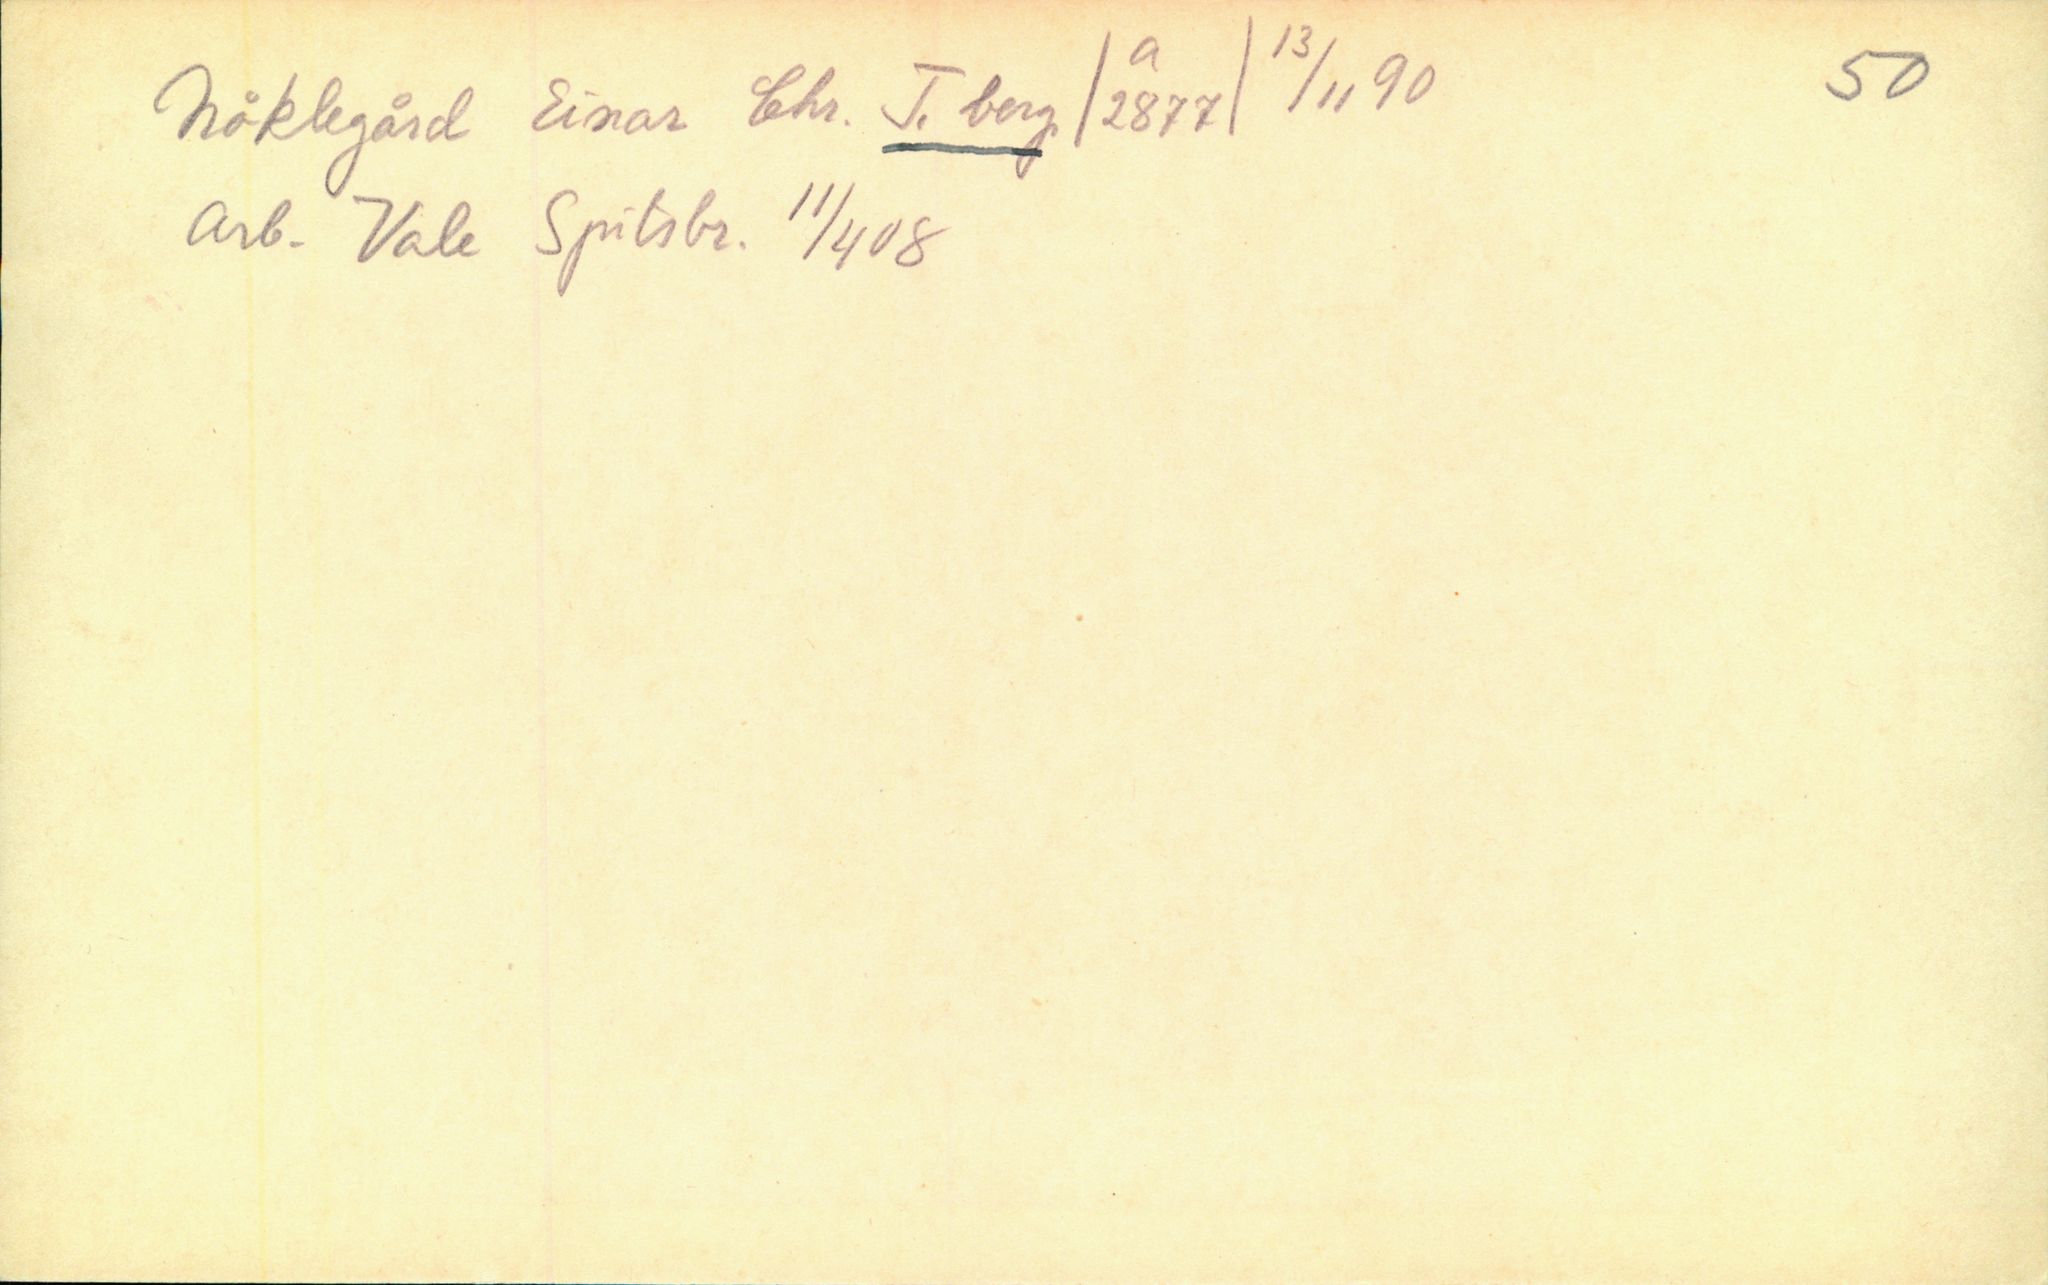 Nöklegård Einar Chr. T. berg. | a 2877 | 13/11 90 50
Arb. Vale Spitsbr. 11/4 08